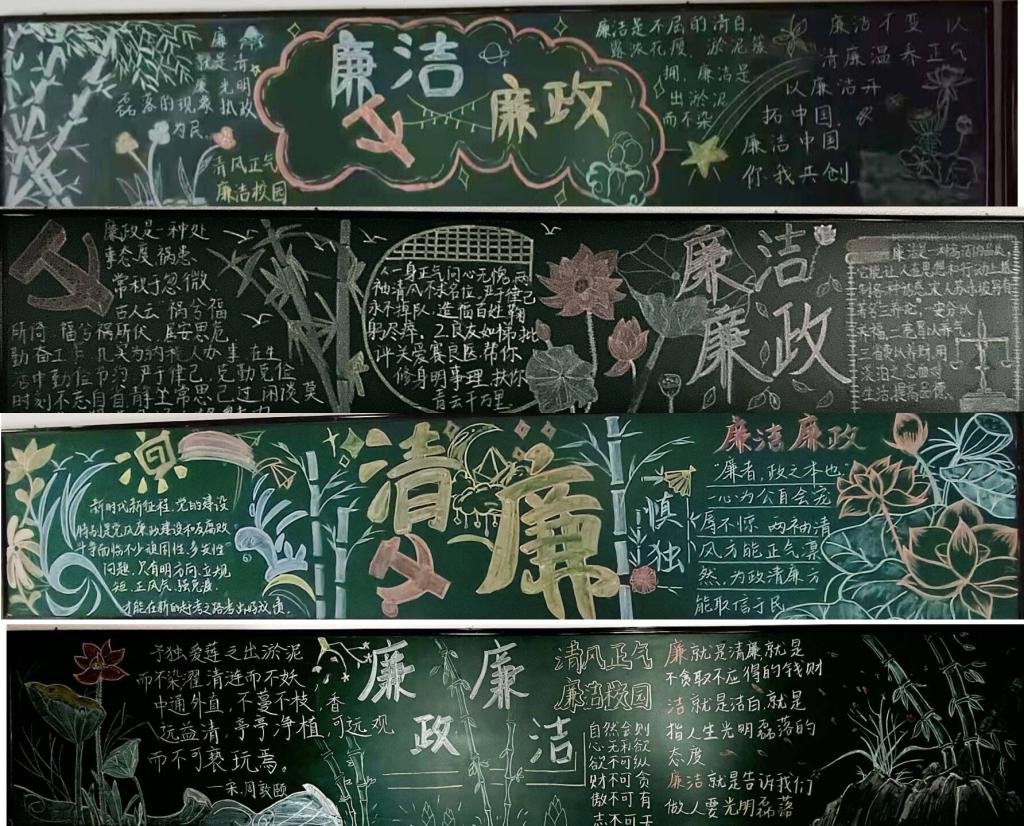 廉
就是清
廉 光明
磊落的现象 执政
为民。
清风正气
廉洁校园
廉洁
廉政
廉洁是不屈的清白,
拥,廉洁是
出淤泥
而不染
廉洁不变 以
清廉温养正气
以廉洁开
拓中国,
廉洁中国
你我共创
廉政是一种处
事态度,祸患
常积于忽微
古人云"祸兮福
所倚,福兮祸所伏,居安思危,
活中勤俭节约,严于律己,克勤克俭
时刻不忘自省静坐常思己过,闲谈莫
人一身正气问心无愧,两
袖清风不求名位,严于律己
永不掉队,造福百姓鞠
躬尽瘁,2良友如梯批
评关爱赛良医帮你
修身明事理,扶你
青云千万里.
廉洁
廉政
廉洁是一种高尚的品质,
它能让人在思想和行动上抵
三曰
淡泊之态面对
生活,提高品德.
凉
新时代新征程,党的建设
特别是党风廉政建设和反腐败
斗争面临不少顽固性,多发性
问题,只有明方向,立规
矩,正风气,强免疫,
才能在新的赶考之路考出好成绩.
清廉
慎独
廉洁廉政
"廉者,政之本也"
一心为公自会宠
辱不惊 两袖清
风方能正气凛
然,为政清廉方
能取信于民
予独爱莲之出淤泥
而不染濯清涟而不妖
中通外直,不蔓不枝,香
远益清,亭亭净植,可远观
而不可亵玩焉。
—宋.周敦颐
廉政
廉洁
清风正气
廉洁校园
自然会则
心无私欲
欲不可纵
财不可贪
傲不可有
廉就是清廉就是
不贪取不应得的钱财
洁就是洁白,就是
指人生光明磊落的
态度
廉洁就是告诉我们
做人要光明磊落